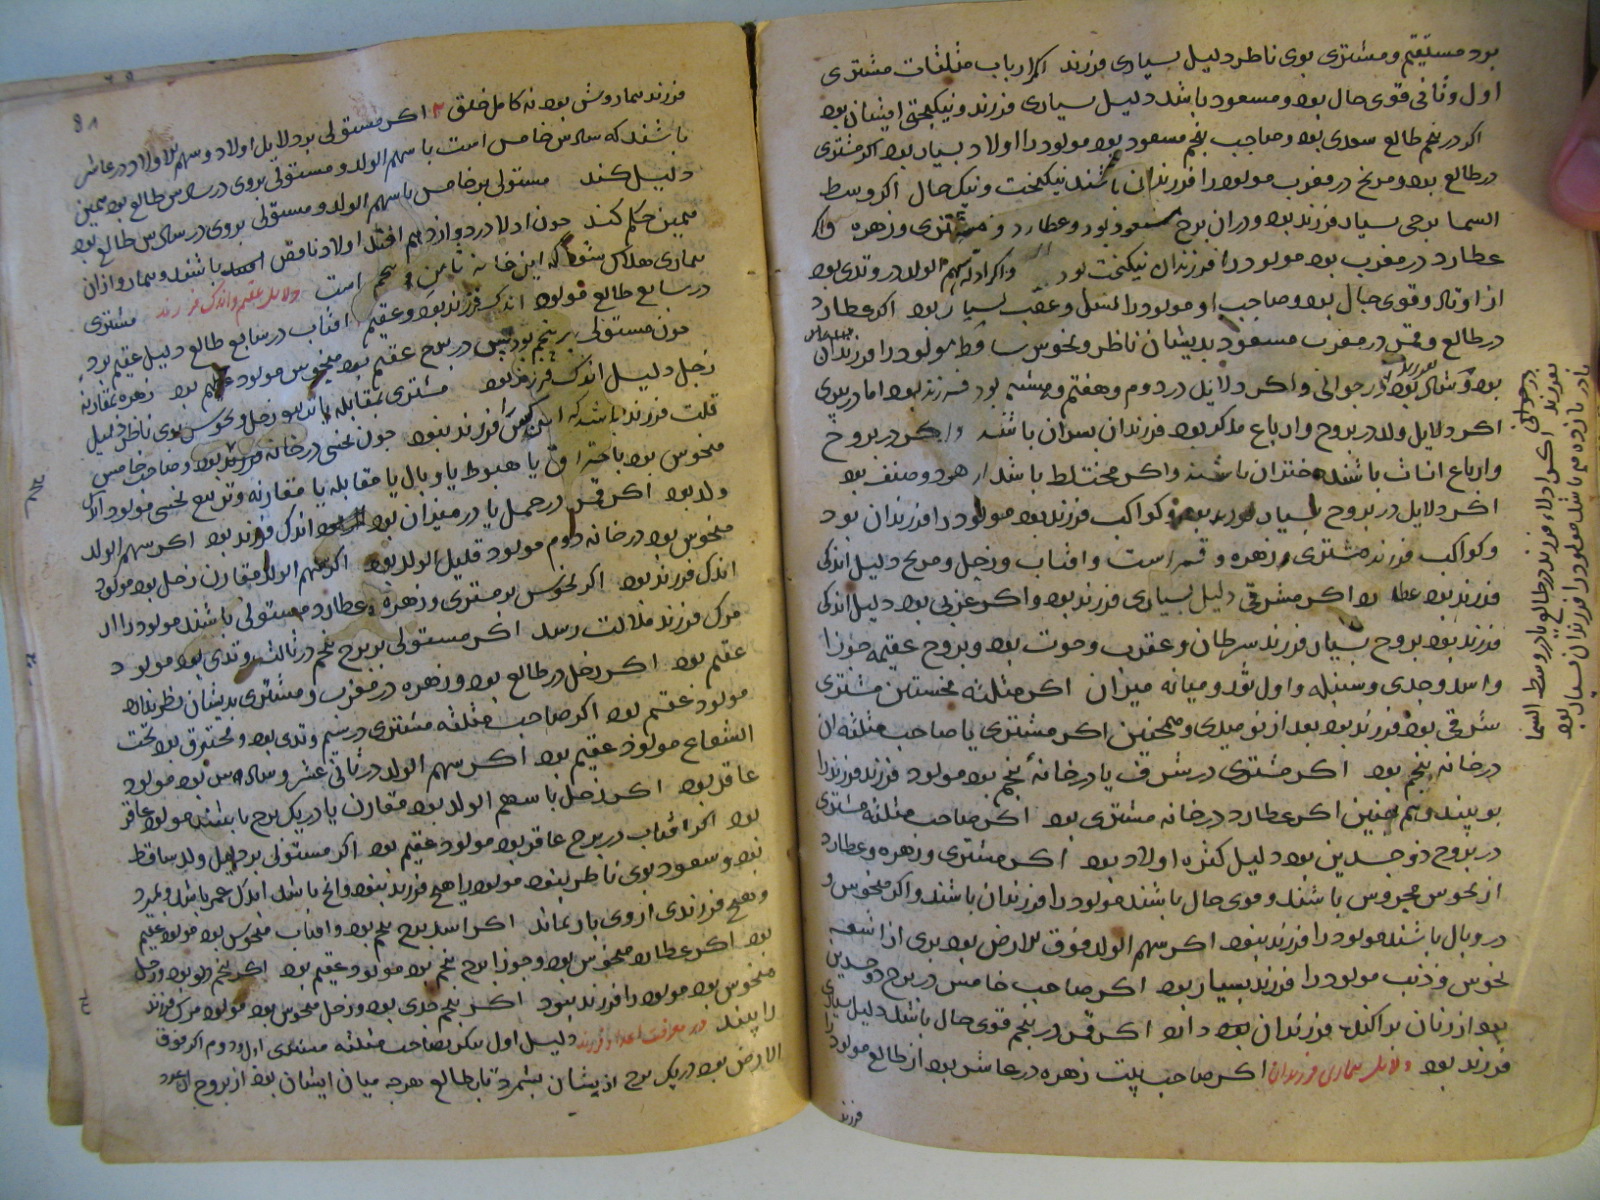 بود مستقیم و مشتری بوی ناظر دلیل بسیاری فرزند اکر ارباب مثلثات مشتری
اول و ثانی قوی حال بود و مسعود باشد دلیل بسیاری فرزند و نیکبختی ایشان بود
اکر در پنجم طالع سعدی بود و صاحب پنجم مسعود بود مولود را اولاد بسیار بود اکر مشتری
در طالع بود و مریخ در مغرب مولود را فرزندان باشند نیکبخت و نیک حال اکر وسط
السما برجی بسیار فرزند بود و دران برج مسعود بود و عطارد و مشتری و زهره و اکر
عطارد در مغرب بود مولود را فرزندان نیکبخت بود و اکر ادله سهم الولد در وتدی بود
از اوتاد و قوی حال بود و صاحب او مولود را نسل و عقب بسیار بود اکر عطارد
در طالع و قمر در مغرب مسعود بدیشان ناظر و نحوس ساقط مولود را فرزندان
بود و اکر دلایل در دوم و هفتم و هشتم بود فرزند بود اما در پیری
اکر دلایل ولد در بروج و ارباع مذکر بود فرزندان پسران باشند و اکر در بروج
و ارباع اناث باشند دختران باشند و اکر مختلط باشد از هر دو صنف بود
اکر دلایل در بروج بسیار فرزند بود و کواکب فرزند بود مولود را فرزندان بود
و کواکب فرزند مشتری و زهره و قمر است و افتاب و زحل و مریخ دلیل اندکی
فرزند بود عطارد اکر مشرقی دلیل بسیاری فرزند بود و اکر غربی بود دلیل اندکی
فرزند بود بروج بسیار فرزند سرطان و عقرب و حوت بود و بروج عقیمه جوزا
و اسد و جدی و سنبله و اول ثور و میانه میزان اکر مثلثه نخستین مشتری
شرقی بود فرزند بود بعد از نومیدی و همچنین اکر مشتری یا صاحب مثلثه ان
در خانه پنجم بود اکر مشتری در شرف یا در خانهٔ پنجم بود مولود فرزند فرزند را
بو بیند و هم چنین اکر عطارد در خانه مشتری بود اکر صاحب مثلثه مشتری
در بروج ذو جسدین بود دلیل کثره اولاد بود اکر مشتری و زهره و عطارد
از نحوس محروس باشند و قوی حال باشند مولود را فرزندان باشند و اکر منحوس و
در وبال باشند مولود را فرزند نبود اکر سهم الولد فوق الارض بود بری از اشعه
نحوس و ذنب مولود را فرزند بسیار بود اکر صاحب خامس در برج ذو جسدین
بود از زنان پراکنده فرزندان بود اکر قمر در پنجم قوی حال باشد دلیل بسیاری
فرزند بود دلایل بیماری فرزندان اکر صاحب بیت زهره در عاشر بود از طالع مولود را
فرزند
فرزند بیمار و شل بود نه کامل خلق اکر مستولی بر دلایل اولاد و سهم الاولاد در عاشر
باشند که سادس خامس است با سهم الولد و مستولی بر وی در سادس طالع بود همین
دلیل کند مستولی بر خامس با سهم الولد و مستولی بر وی در سادس طالع بود
همین حکم کند چون ادلا در دوازدهم افتد اولاد ناقص باشند و بیمار و ازان
بیماری هلاک شوند که این خانه ثامن پنجم است دلایل عقیم و اندک فرزند مشتری
در سابع طالع مولود اندک فرزند بود و عقیم افتاب در سابع طالع دلیل عقیم بود
چون مستولی بر پنجم بود در برج عقیم بود منحوس مولود عقیم بود زهره بمقارنه
زحل دلیل اندک فرزند بود مشتری بمقابله زحل و نحوس بوی ناظر دلیل
قلت فرزند باشد که این کس را فرزند نبود چون نحسی در خانه فرزند بود و صاحب خامس
منحوس بود باحتراق یا هبوط یا وبال یا مقابله یا مقارنه و تربیع نحسی مولود اندک
ولد بود اکر قمر در حمل یا در میزان بود اندک فرزند بود اکر سهم الولد
منحوس بود در خانه دوم مولود قلیل الولد بود اکر سهم الولد مقارن زحل بود مولود
اندک فرزند بود اکر نحوس بر مشتری و زهره و عطارد مستولی باشند مولود را از
مرک فرزند ملالت رسد اکر مستولی بر برج پنجم در ثالث و تدی بود مولود
عقیم بود اکر زحل در طالع بود و زهره در مغرب و مشتری بدیشان نظر ندارد
مولود عقیم بود اکر صاحب مثلثه مشتری در ششم وتدی بود و محترق بود تحت
الشعاع مولود عقیم بود اکر سهم الولد در ثانی عشر و سادس بود مولود
عاقر بود اکر زحل با سهم الولد بود مقارن یا در یک برج باشند مولود عاقر
بود اکر افتاب در برج عاقر بود مولود عقیم بود اکر مستولی بر دلیل ولد ساقط
بود و سعود بوی ناظر نبود مولود را هیچ فرزند نبود و انج باشد اندک عمر باشد و بمیرد
و هیچ فرزندی از وی باز نماند اکر اسد برج پنجم بود و افتاب منحوس بود مولود عقیم
بود اکر عطارد منحوس بود و جوزا برج پنجم بود مولود عقیم بود اکر پنجم دلو بود و زحل
منحوس بود مولود را فرزند نبود اکر پنجم جدی بود و زحل منحوس بود مولود مرک فرزند
را بیند در معرفت اعداد فرزند دلیل اول بنکر بصاحب مثلثه مشتری اول و دوم اکر فوق
الارض بود در یک برج از یشان بشمرد تا بطالع هر چه میان ایشان بود از بروج
در حوالی
بود و فرزند اکر ادلاء فرزند در طالع یا در وسط السما
یا در یازدهم باشند مولود را فرزندان بسیار بود